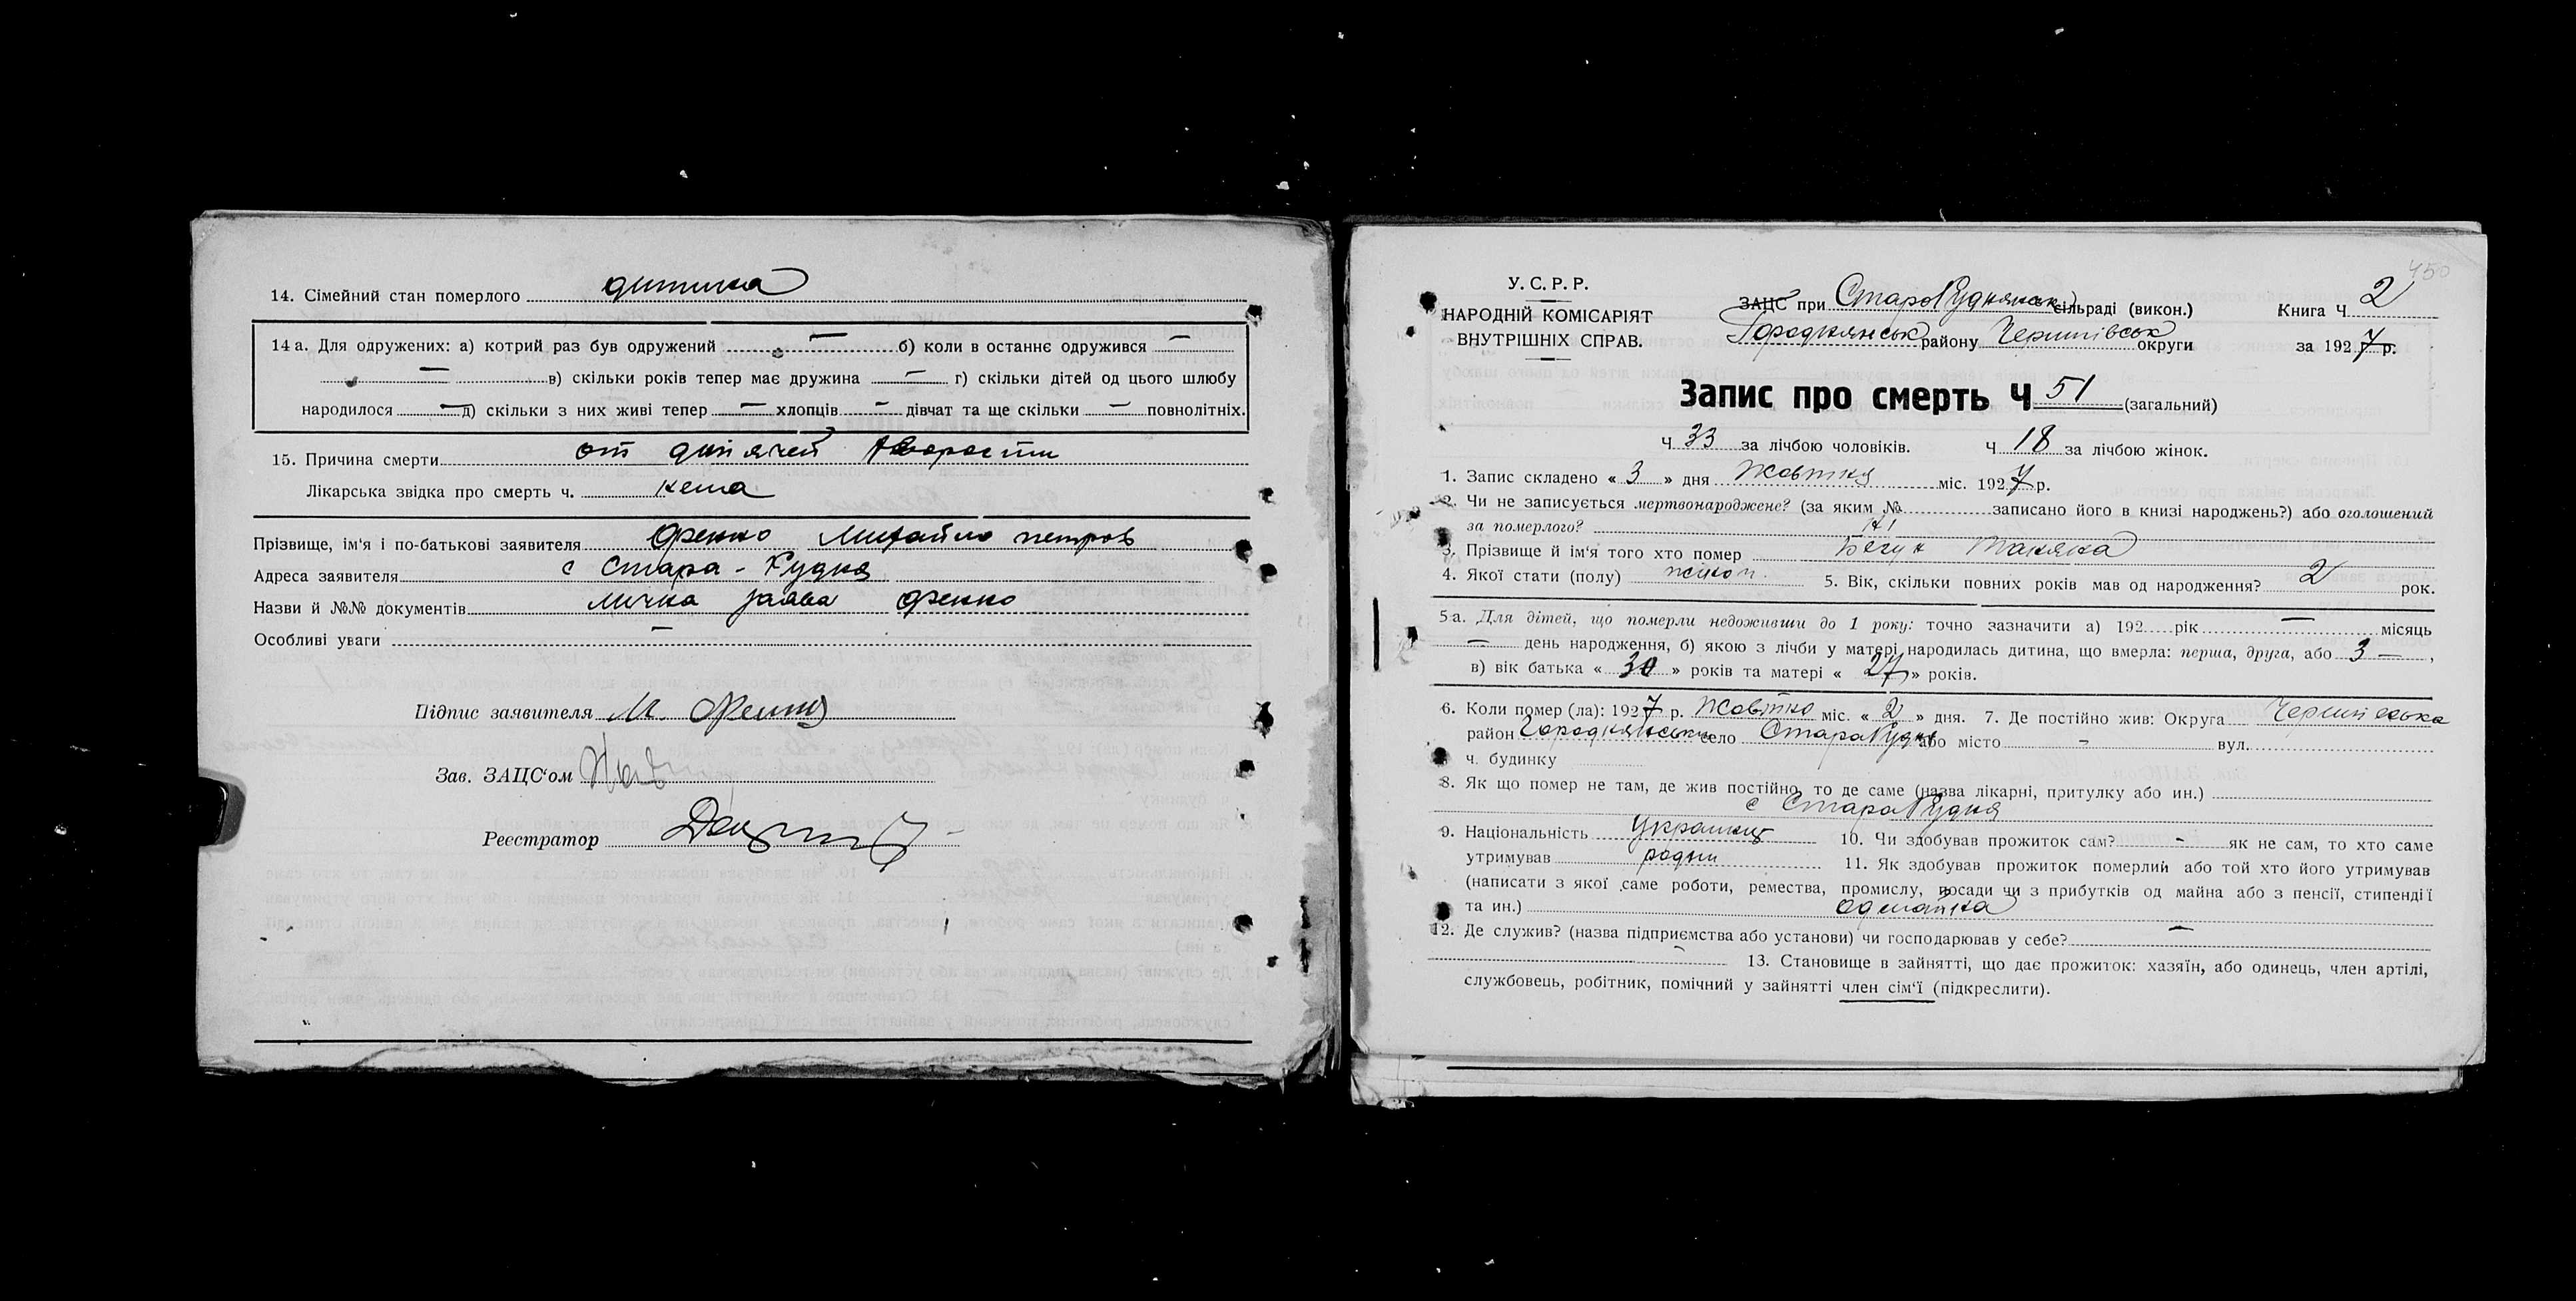 14. Сімейний стан померлого дитина
14 а. Для одружених: а) котрий раз був одружений — б) коли в останнє одружився —
— в) скільки років тепер має дружина — г) скільки дітей од цього шлюбу
народилося — д) скільки з них живі тепер — хлопців — дівчат та ще скільки — повнолітніх.
15. Причина смерти от дитячей хворости
Лікарська звідка про смерть ч. нема
Прізвище, ім'я і по-батькові заявителя Михайло петров
Адреса заявителя с Стара-Рудня
Назви й №№ документів лична заява
Особливі уваги —
Підпис заявителя М.
Зав. ЗАЦС'ом
Реєстратор
450
У. С. Р. Р.
НАРОДНІЙ КОМІСАРІЯТ
ВНУТРІШНІХ СПРАВ.
ЗАЦС при СтароРуднянськ сільраді (викон.)
Городнянськ району Чернигівськ округи
Книга Ч 2
за 1927 р.
Запис про смерть Ч 51 (загальний)
Ч 33 за лічбою чоловіків. Ч 18 за лічбою жінок.
1. Запис складено « 3 » дня Жовтня міс. 1927 р.
2. Чи не записується мертвонароджене? (за яким № записано його в книзі народжень?) або оголошений
за померлого? Ні
3. Прізвище й ім'я того хто помер Бегун
4. Якої стати (полу) жіноч. 5. Вік, скільки повних років мав од народження? 2 рок.
5а. Для дітей, що померли недоживши до 1 року: точно зазначити а) 192 рік — місяць
— день народження, б) якою з лічби у матері народилась дитина, що вмерла: перша, друга, або 3 — ,
в) вік батька « 30 » років та матері « 27 » років.
6. Коли помер (ла): 1927 р. Жовтня міс. « 2 » дня. 7. Де постійно жив: Округа Чернигівська
район Городнянськи село СтараРудня або місто - вул.
ч. будинку
8. Як що помер не там, де жив постійно, то де саме (назва лікарні, притулку або ин.)
с СтараРудня
9. Національність украинц 10. Чи здобував прожиток сам? - як не сам, то хто саме
утримував родит 11. Як здобував прожиток померлий або той хто його утримував
(написати з якої саме роботи, ремества, промислу, посади чи з прибутків од майна або з пенсії, стипендії
та ин.) од майна
12. Де служив? (назва підприємства або установи) чи господарював у себе? —
- 13. Становище в зайнятті, що дає прожиток: хазяїн, або одинець, член артілі,
службовець, робітник, помічний у зайнятті член сім'ї (підкреслити).